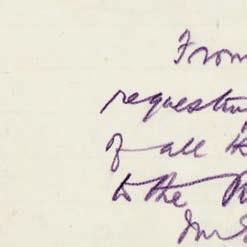 From
requesting
of all th
to the